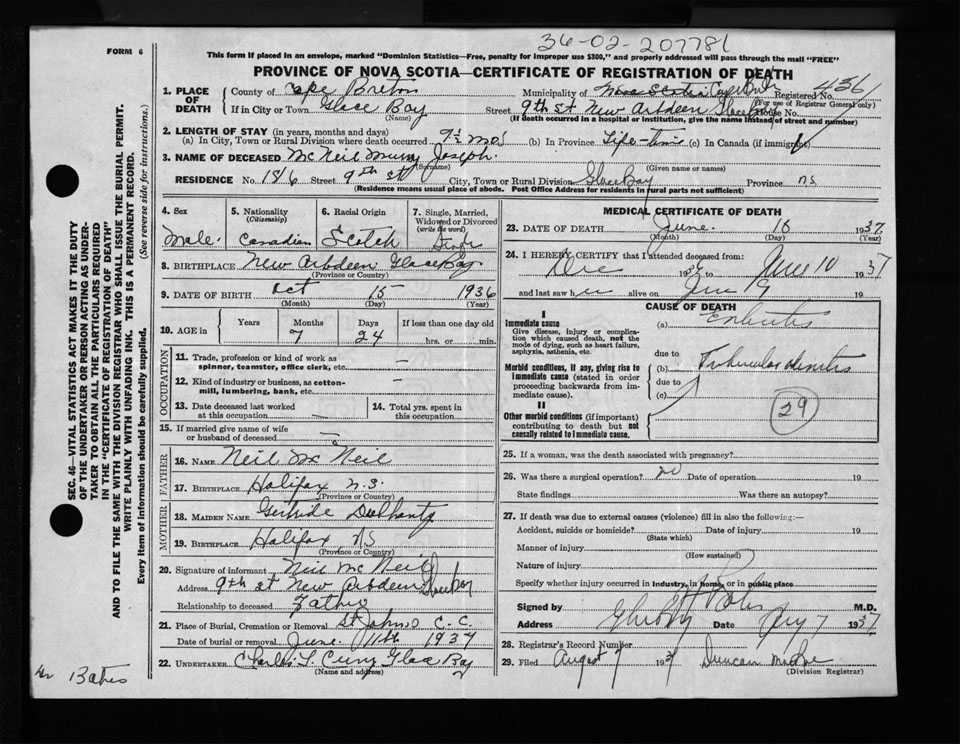 FORM 6
36-02-207781
This form if placed in an envelope, marked "Dominion Statistics—Free, penalty for improper use $300," and properly addressed will pass through the mail "FREE"
PROVINCE OF NOVA SCOTIA—CERTIFICATE OF REGISTRATION OF DEATH
1. PLACE OF DEATH
County of Cape Breton
Municipality of Nova Scotia Cape
Registered No. 4561
(For use of Registrar General only)
If in City or Town Glace Bay
(Name)
Street 9th St New Arbdeen Glace Bay House No.
(If death occurred in a hospital or institution, give the name instead of street and number)
2. LENGTH OF STAY (in years, months and days)
(a) In City, Town or Rural Division where death occurred 7½ mos (b) In Province Life-time (c) In Canada (if immigrant)
3. NAME OF DECEASED McNeil Joseph
(Surname) (Given name or names)
RESIDENCE No. 1816 Street 9th St City, Town or Rural Division Glace Bay Province NS
(Residence means usual place of abode. Post Office Address for residents in rural parts not sufficient)
4. Sex Male
5. Nationality (Citizenship) Canadian
6. Racial Origin Scotch
7. Single, Married, Widowed or Divorced (write the word) Single
8. BIRTHPLACE New Arbdeen Glace Bay
(Province or Country)
9. DATE OF BIRTH Oct 15 1936
(Month) (Day) (Year)
10. AGE in Years Months Days If less than one day old
7 24 hrs. or min.
OCCUPATION
11. Trade, profession or kind of work as spinner, teamster, office clerk, etc. —
12. Kind of industry or business, as cotton-mill, lumbering, bank, etc. —
13. Date deceased last worked at this occupation
14. Total yrs. spent in this occupation
15. If married give name of wife or husband of deceased —
FATHER
16. NAME Neil McNeil
17. BIRTHPLACE Halifax N.S.
(Province or Country)
MOTHER
18. MAIDEN NAME Gertrude Dulhanty
19. BIRTHPLACE Halifax NS
(Province or Country)
20. Signature of informant Neil McNeil
Address 9th St New Arbdeen
Relationship to deceased Father
21. Place of Burial, Cremation or Removal St Johns C.C.
Date of burial or removal June 11th 1937
22. UNDERTAKER Charles T. Curry Glace Bay
(Name and address)
MEDICAL CERTIFICATE OF DEATH
23. DATE OF DEATH June 10 1937
(Month) (Day) (Year)
24. I HEREBY CERTIFY that I attended deceased from:
Dec 1936 to June 10 1937
and last saw h alive on June 9 19
CAUSE OF DEATH
I
Immediate cause
Give disease, injury or complication which caused death, not the mode of dying, such as heart failure, asphyxia, asthenia, etc.
(a) Enteritis
due to
Morbid conditions, if any, giving rise to immediate cause (stated in order proceeding backwards from immediate cause).
(b) Tubercular
due to
(c)
II
Other morbid conditions (if important) contributing to death but not causally related to immediate cause.
29
25. If a woman, was the death associated with pregnancy?
26. Was there a surgical operation? no Date of operation 19
State findings Was there an autopsy?
27. If death was due to external causes (violence) fill in also the following:—
Accident, suicide or homicide? Date of injury 19
(State which)
Manner of injury
(How sustained)
Nature of injury
Specify whether injury occurred in industry, in home, or in public place
Signed by M.D.
Address Date 7 1937
28. Registrar's Record Number
29. Filed August 7 1937 Duncan
(Division Registrar)
SEC. 46—VITAL STATISTICS ACT MAKES IT THE DUTY
OF THE UNDERTAKER OR PERSON ACTING AS UNDER-
TAKER TO OBTAIN ALL THE PARTICULARS REQUIRED
IN THE "CERTIFICATE OF REGISTRATION OF DEATH"
AND TO FILE THE SAME WITH THE DIVISION REGISTRAR WHO SHALL ISSUE THE BURIAL PERMIT.
WRITE PLAINLY WITH UNFADING INK. THIS IS A PERMANENT RECORD.
Every item of information should be carefully supplied. (See reverse side for instructions.)
Dr Bates